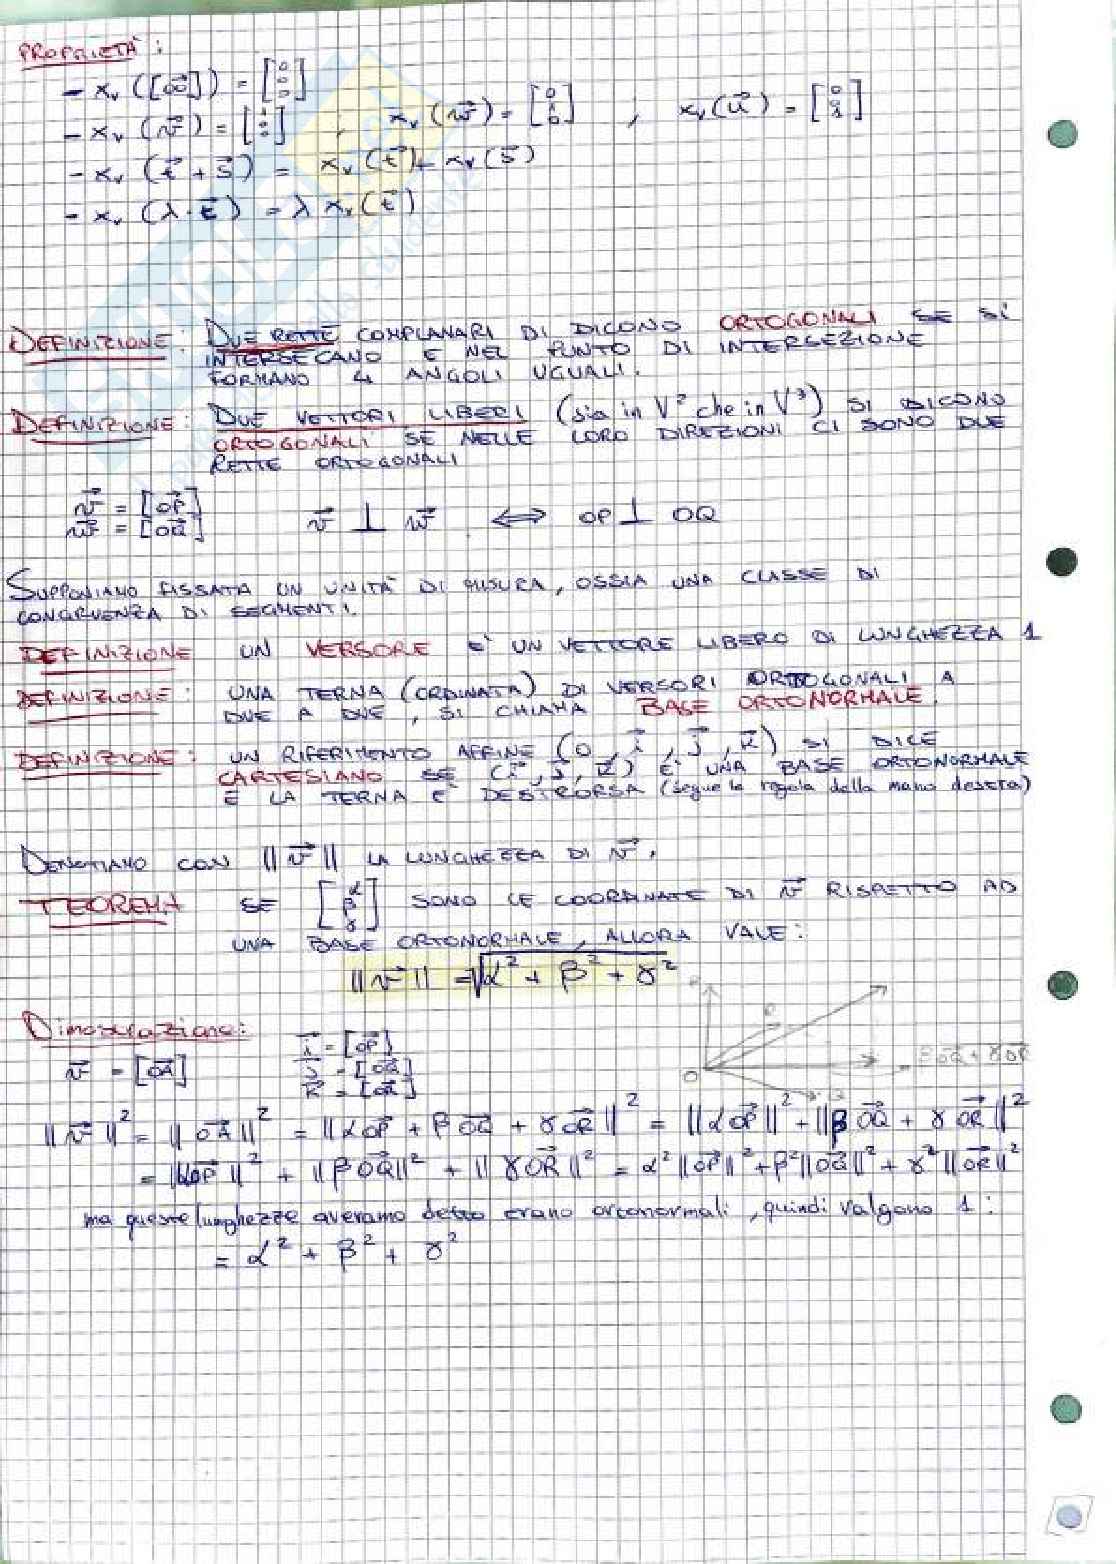 PROPRIETÀ:
- xᵥ([OO⃗]) = [0 0 0]
- xᵥ(v⃗) = [1 0 0] ; xᵥ(w⃗) = [0 1 0] ; xᵥ(u⃗) = [0 0 1]
- xᵥ(t⃗ + s⃗) = xᵥ(t⃗) + xᵥ(s⃗)
- xᵥ(λ·t⃗) = λ xᵥ(t⃗)
DEFINIZIONE: DUE RETTE COMPLANARI DI DICONO ORTOGONALI SE SI
INTERSECANO E NEL PUNTO DI INTERSEZIONE
FORMANO 4 ANGOLI UGUALI.
DEFINIZIONE: DUE VETTORI LIBERI (sia in V² che in V³) SI DICONO
ORTOGONALI SE NELLE LORO DIREZIONI CI SONO DUE
RETTE ORTOGONALI
v⃗ = [OP⃗]
w⃗ = [OQ⃗] v⃗ ⊥ w⃗ ⟺ OP ⊥ OQ
SUPPONIAMO FISSATA UN UNITÀ DI MISURA, OSSIA UNA CLASSE DI
CONGRUENZA DI SEGMENTI.
DEFINIZIONE UN VERSORE E' UN VETTORE LIBERO DI LUNGHEZZA 1
DEFINIZIONE: UNA TERNA (ORDINATA) DI VERSORI ORTOGONALI A
DUE A DUE, SI CHIAMA BASE ORTONORMALE.
DEFINIZIONE: UN RIFERIMENTO AFFINE (O, i⃗, j⃗, k⃗) SI DICE
CARTESIANO SE (i⃗, j⃗, k⃗) E' UNA BASE ORTONORMALE
E LA TERNA E' DESTRORSA (segue la regola della mano destra)
DENOTIAMO CON ||v⃗|| LA LUNGHEZZA DI v⃗.
TEOREMA SE [α β γ] SONO LE COORDINATE DI v⃗ RISPETTO AD
UNA BASE ORTONORMALE, ALLORA VALE:
||v⃗|| = √α² + β² + γ²
Dimostrazione:
v⃗ = [OA⃗]
i⃗ = [OP⃗]
j⃗ = [OQ⃗]
k⃗ = [OR⃗]
O
βOQ⃗ + γOR⃗
||v⃗||² = ||OA⃗||² = ||αOP⃗ + βOQ⃗ + γOR⃗||² = ||αOP⃗||² + ||βOQ⃗ + γOR⃗||²
= ||αOP⃗||² + ||βOQ⃗||² + ||γOR⃗||² = α²||OP⃗||² + β²||OQ⃗||² + γ²||OR⃗||²
ma queste lunghezze avevamo detto erano ortonormali, quindi valgono 1:
= α² + β² + γ²